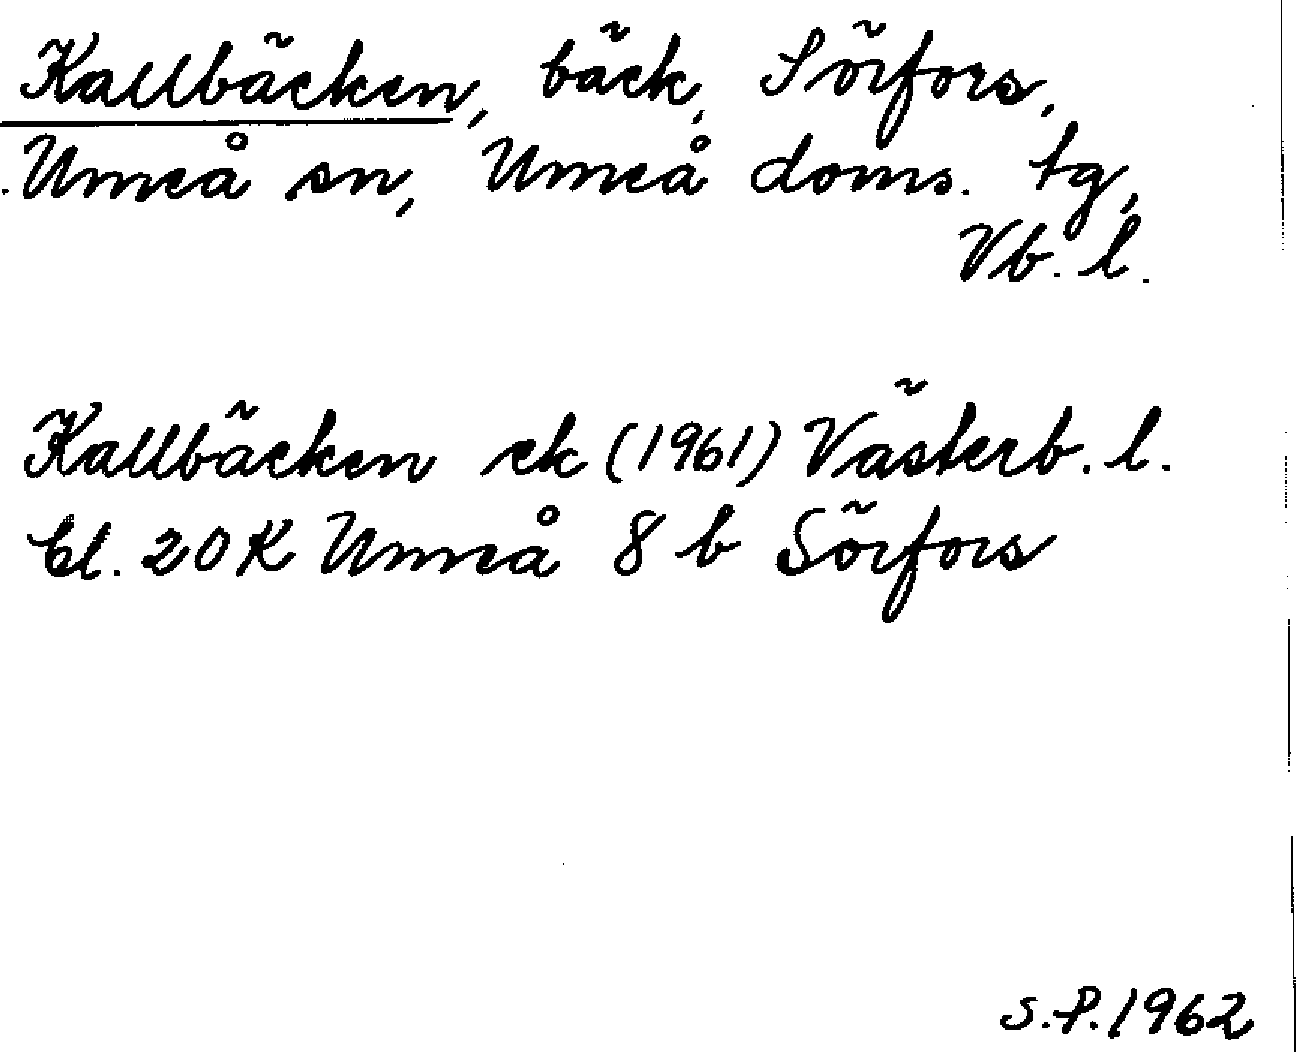 Kallbäcken, bäck, Sörfors,
Umeå sn, Umeå doms. tg,
Vb. l.
Kallbäcken ek (1961) Västerb. l.
bl. 20 K Umeå 8 b Sörfors
S.P. 1962